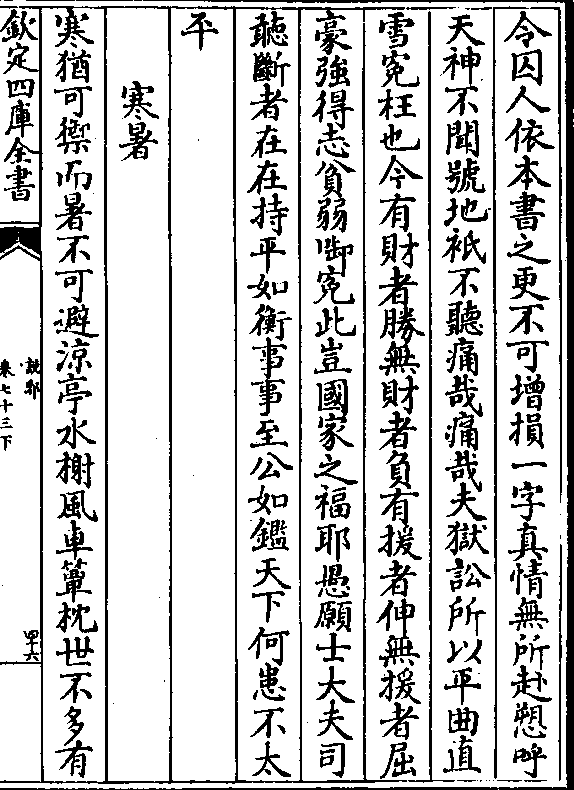 令囚人依本書之更不可增損一字真情無所赴愬呼
天神不聞號地祇不聽痛哉痛哉夫獄訟所以平曲直
雪寃枉也今有財者勝無財者負有援者伸無援者屈
豪強得志貧弱啣寃此豈國家之福耶愚願士大夫司
聽斷者在在持平如衡事事至公如鑑天下何患不太
平
寒暑
寒猶可禦而暑不可避涼亭水榭風車簟枕世不多有
欽定四庫全書
說郛
卷七十三下
四十六